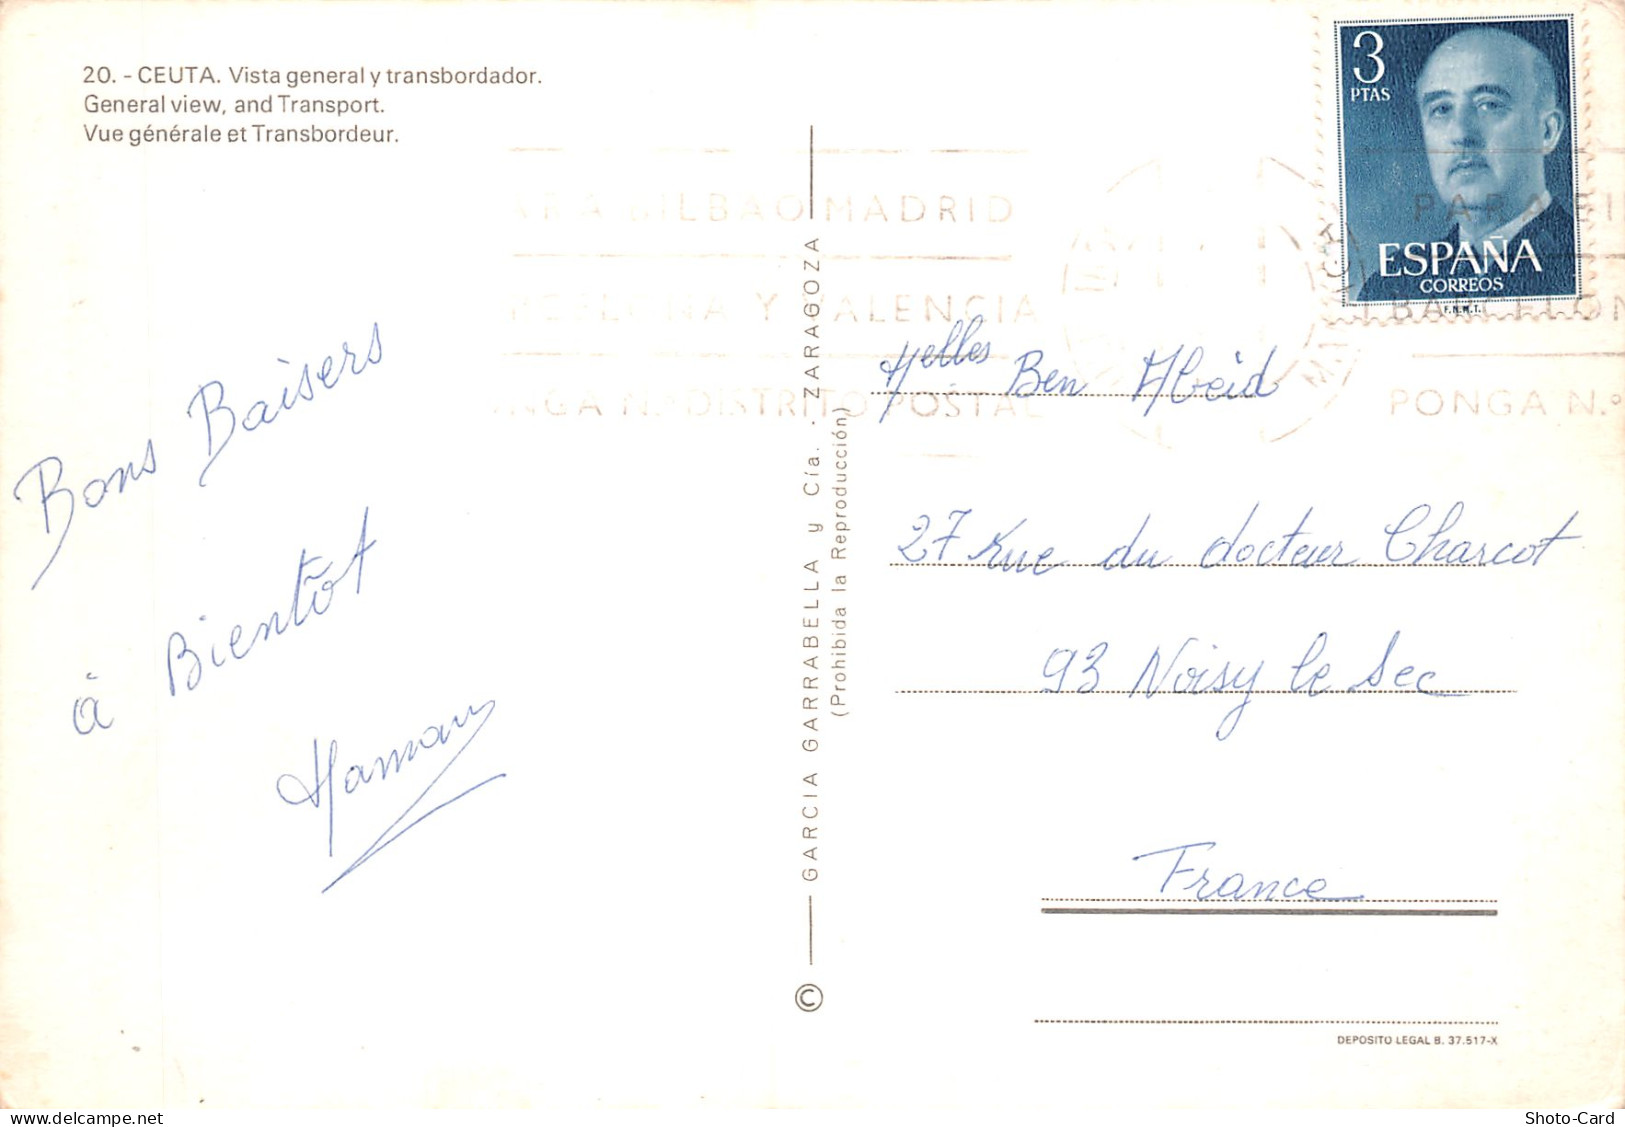 20. - CEUTA. Vista general y transbordador.
General view, and Transport.
Vue générale et Transbordeur.
Bons Baisers
à Bientôt
GARCIA GARRABELLA y Cía. - ZARAGOZA
(Prohibida la Reproducción)
©
3
PTAS
ESPAÑA
CORREOS
F.N.M.T.
BILBAO MADRID
Y VALENCIA
N.º DISTRITO POSTAL
PARA
BARCELON
PONGA N.º
Melles Ben
27 rue du docteur Charcot
93 Noisy le Sec
France
DEPOSITO LEGAL B. 37.517-X
delcampe.net
Shoto-Card